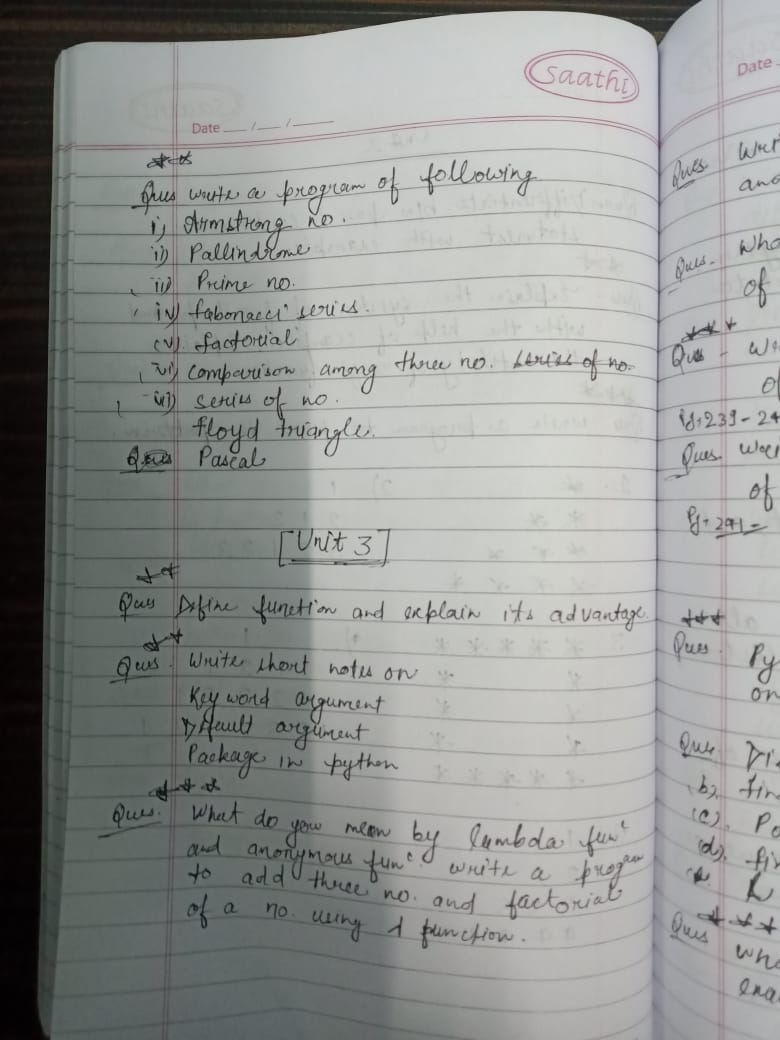 saathi
Date __/__/__
Ques write a program of following
i) Armstrong no.
ii) Pallindrome
iii) Prime no.
iv) fabonacci series.
(v). factorial
vi) comparison among three no. series of no.
vii) series of no.
floyd triangle.
Ques Pascal
[Unit 3]
Ques Define function and explain its advantage.
Ques. Write short notes on
Key word argument
Default argument
Package in python
Ques. What do you mean by lambda fun
and anonymous fun. write a program
to add three no. and factorial
of a no. using λ function.
Date
Ques. Wri
and
Ques. Wha
of
Ques - W
of
Pg. 239 - 24
Ques.
of
Pg. 241 -
Ques. Py
on
Ques. Di
(b). fin
(c). Po
(d). fi
Ques wh